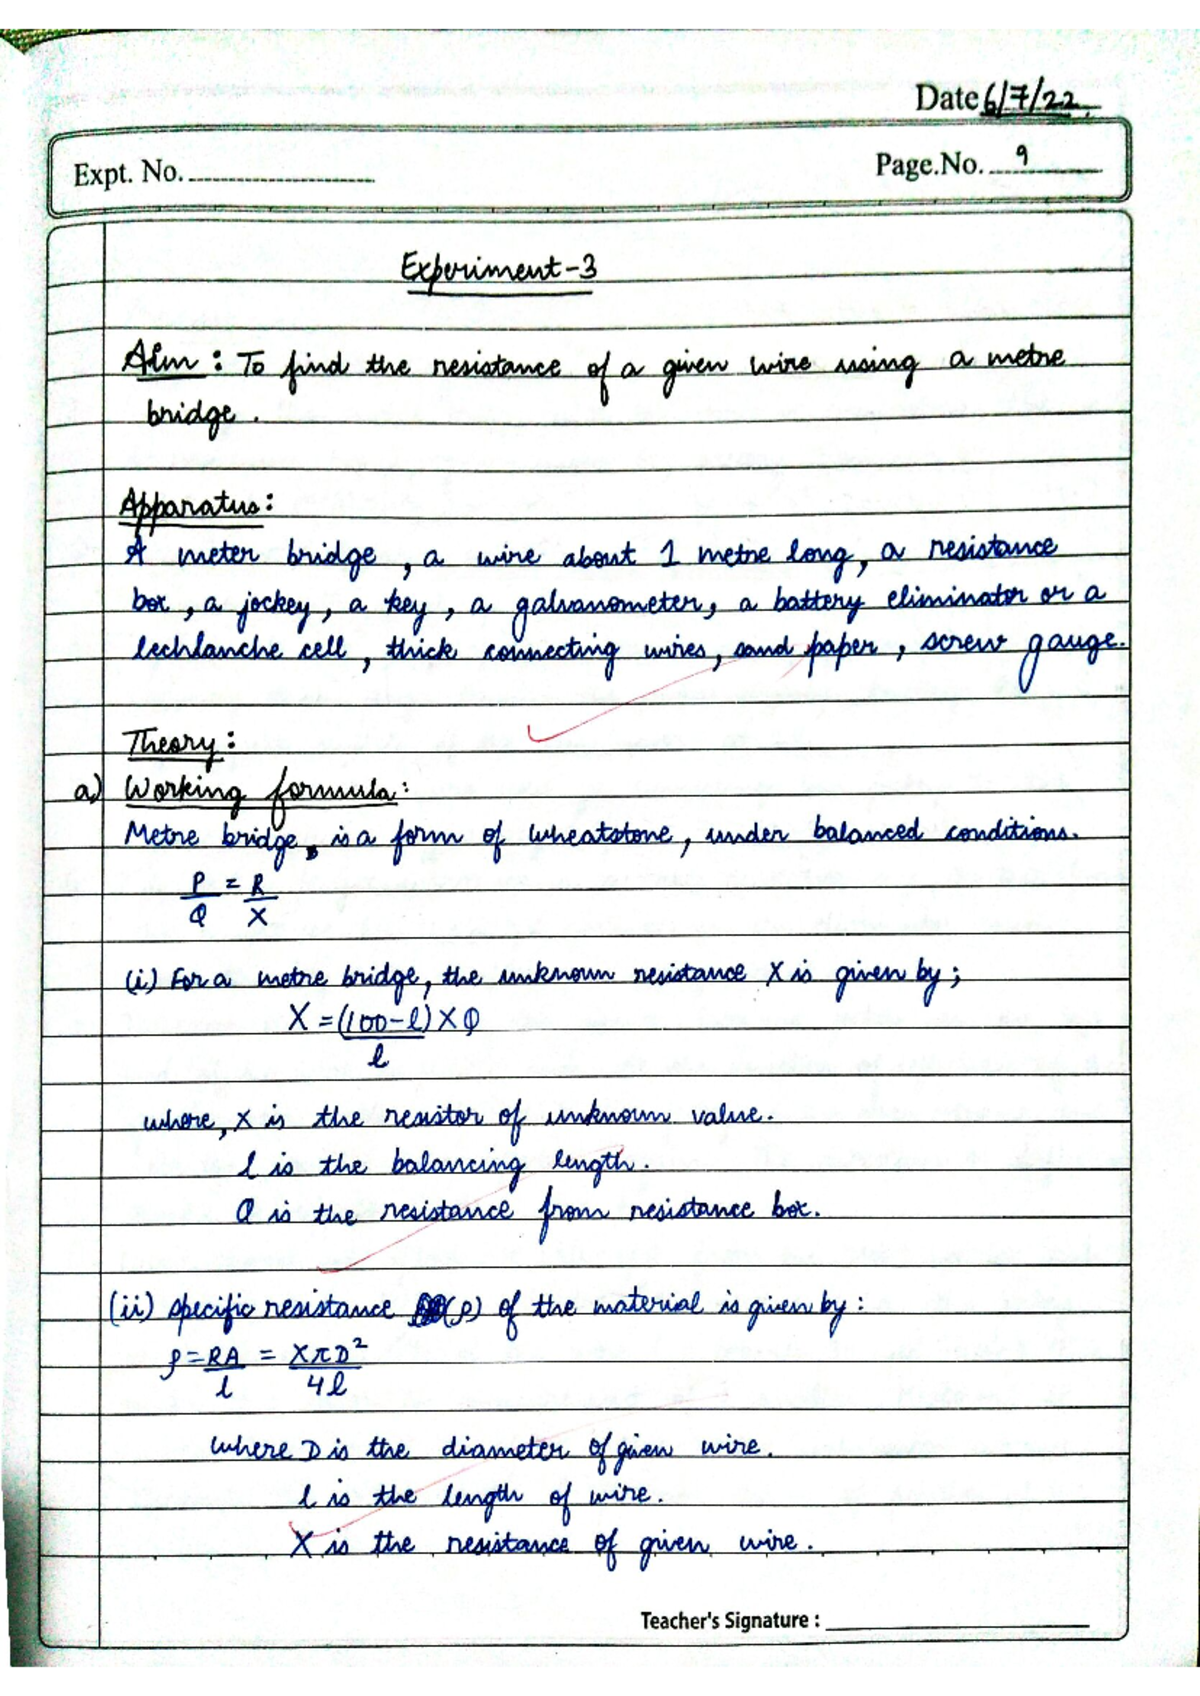 Date 6/7/22
Expt. No.
Page.No. 9
Experiment-3
Aim : To find the resistance of a given wire using a metre
bridge .
Apparatus :
A meter bridge , a wire about 1 metre long, a resistance
box , a jockey, a key , a galvanometer, a battery eliminator or a
lechlanche cell , thick connecting wires, sand paper , screw gauge.
Theory :
a) Working formula :
Metre bridge, is a form of wheatstone, under balanced conditions.
P = R
Q X
(i) For a metre bridge, the unknown resistance X is given by ;
X = (100-l) X Q
l
where, X is the resistor of unknown value.
l is the balancing length.
Q is the resistance from resistance box.
(ii) specific resistance (ρ) of the material is given by :
ρ = RA = XπD²
l 4l
where D is the diameter of given wire.
l is the length of wire.
X is the resistance of given wire .
Teacher's Signature :